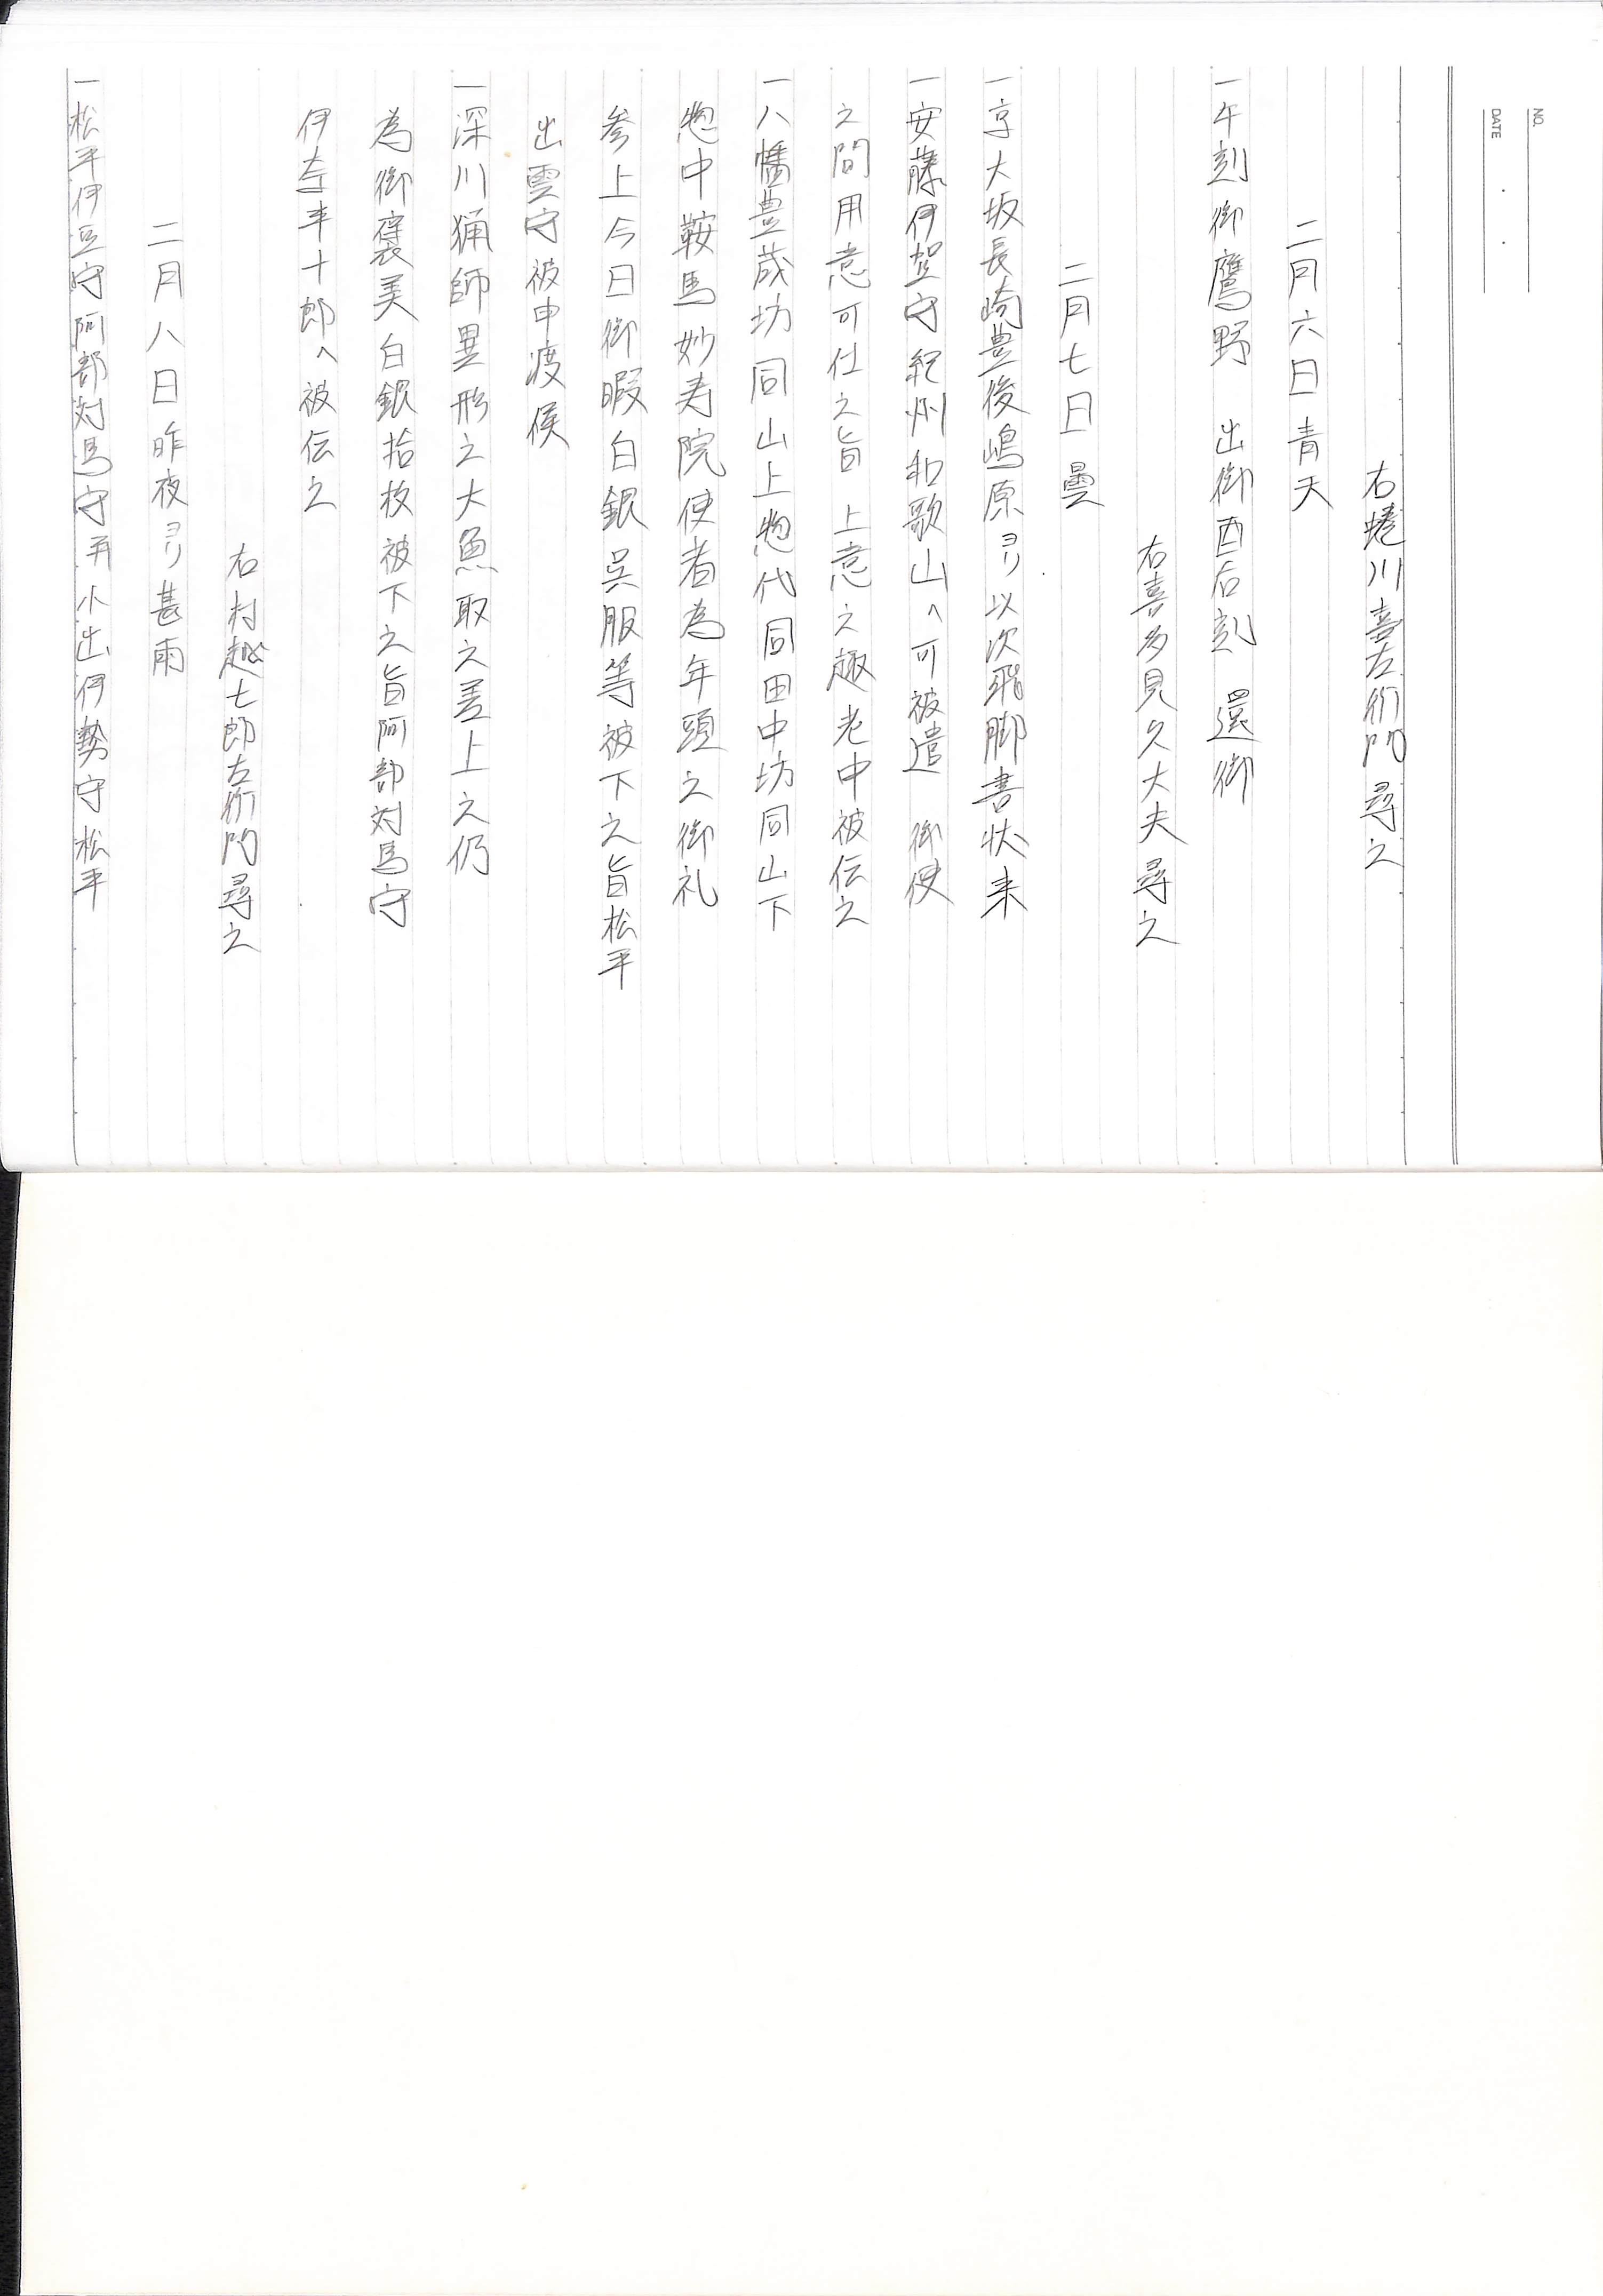 NO.
DATE
右蜷川喜左衛門尋之
二月六日青天
一午刻御鷹野 出御酉后刻 還御
右喜多見久大夫尋之
二月七日曇
一京大坂長崎豊後嶋原ヨリ以次飛脚書状来
一安藤伊賀守紀州和歌山へ可被遣 御使
之間用意可仕之旨 上意之趣老中被伝之
一八幡豊蔵坊同山上惣代同田中坊同山下
惣中鞍馬妙寿院使者為年頭之御礼
参上今日御暇白銀呉服等被下之旨松平
出雲守被申渡候
一深川猟師異形之大魚取之差上之仍
為御褒美白銀拾枚被下之旨阿部対馬守
伊奈半十郎へ被伝之
右村越七郎左衛門尋之
二月八日昨夜ヨリ甚雨
一松平伊豆守阿部対馬守并小出伊勢守松平